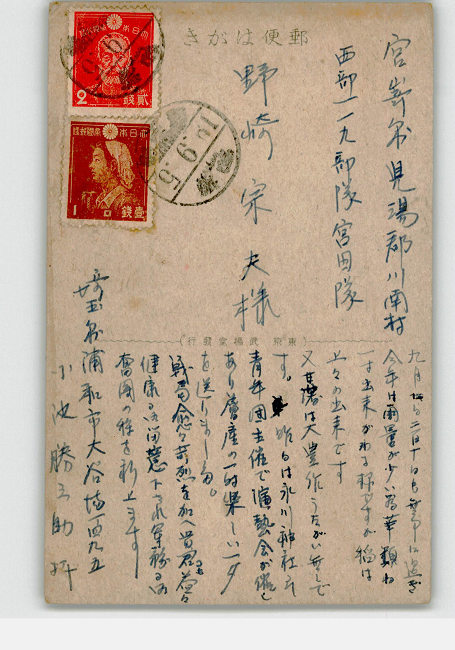 郵便はがき
大日本帝國郵便
2
貳錢
大日本帝國郵便
1
壹錢
18.9.5
宮崎縣児湯郡川南村
西部一一九部隊宮田隊
野崎宗夫様
東京 武揚堂發行
九月
今年は雨量が少い為
出来がわるい様ですが稲は
上々の出来です
又甘藷は大豊作うたがい無しで
す。昨日は氷川神社で
青年団主催で演藝会が催し
あり農産の一時楽しい一夕
を送りました。
戦局愈々苛烈を加へ貴君益々
健康に留意下され軍務に
奮闘の程を祈上ます
埼玉縣浦和市大谷場
小池勝之助